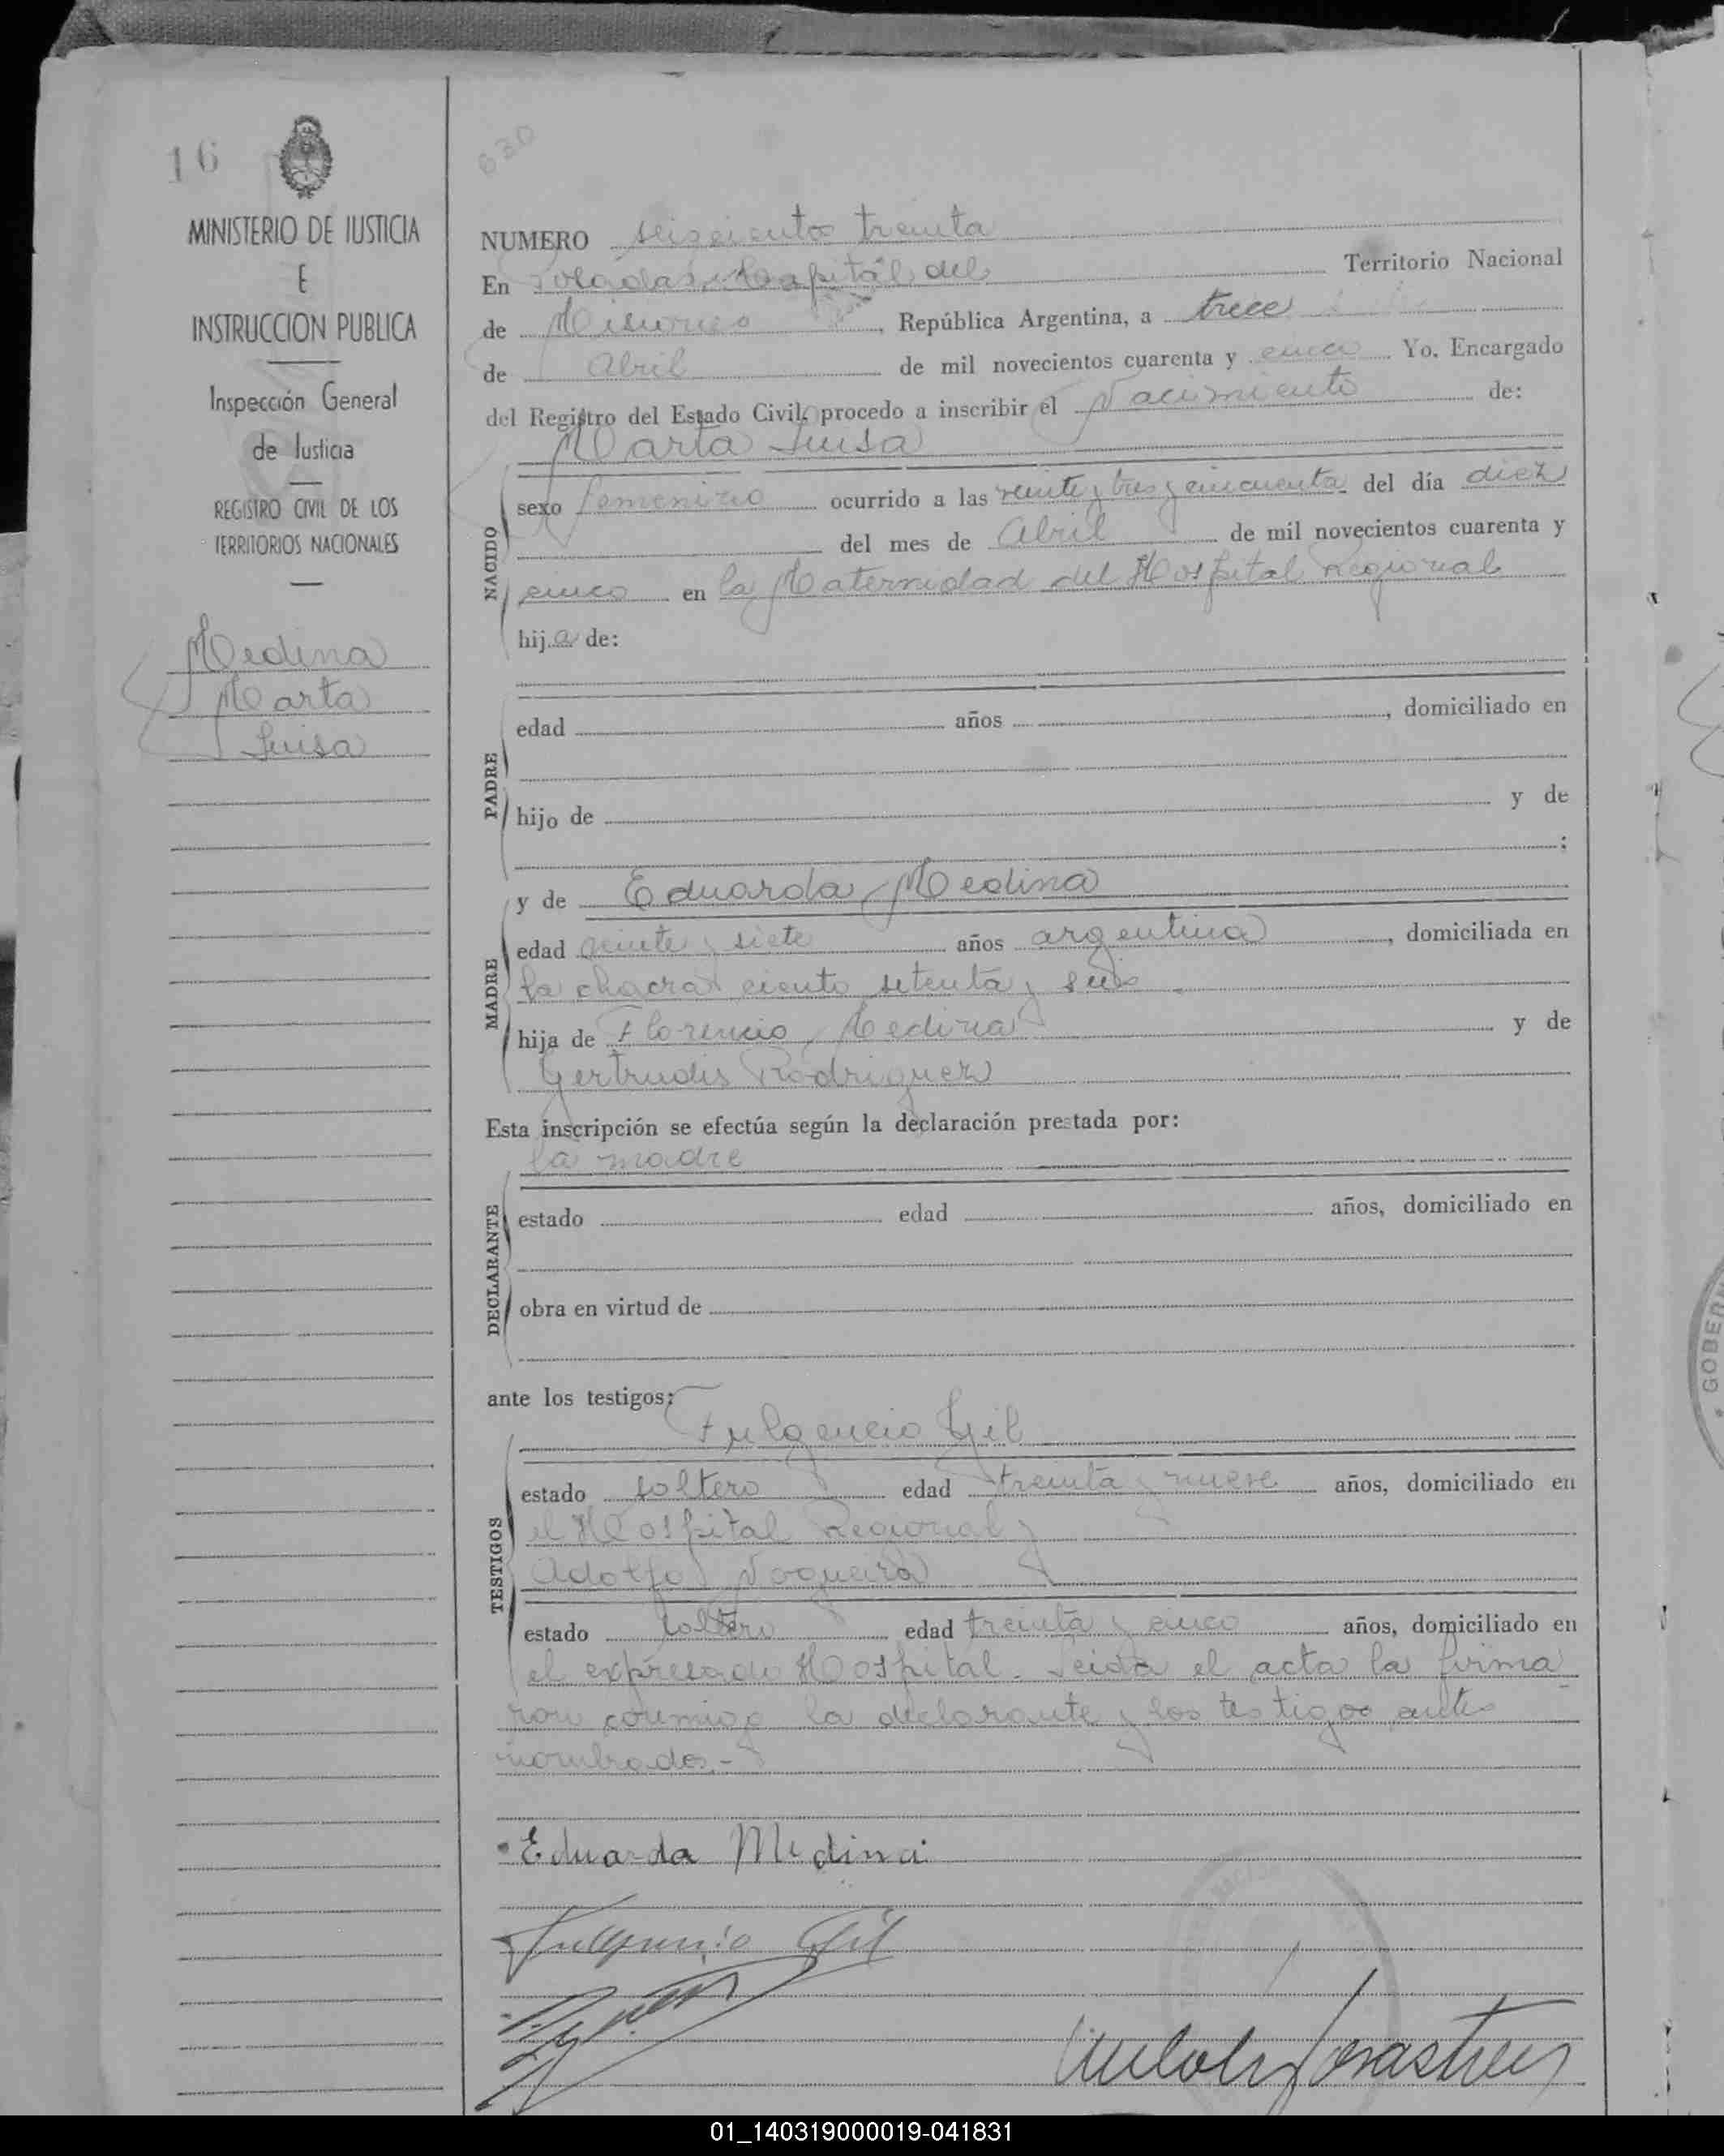 16
630
MINISTERIO DE JUSTICIA
E
INSTRUCCION PUBLICA
Inspección General
de Justicia
REGISTRO CIVIL DE LOS
TERRITORIOS NACIONALES
Medina
Marta
Luisa
NUMERO seiscientos treinta
En Posadas, Capital del Territorio Nacional
de Misiones, República Argentina, a trece
de Abril de mil novecientos cuarenta y cinco Yo, Encargado
del Registro del Estado Civil, procedo a inscribir el Nacimiento de:
Marta Luisa
NACIDO
sexo femenino ocurrido a las veinte y tres y cincuenta del día diez
del mes de Abril de mil novecientos cuarenta y
cinco en la Maternidad del Hospital Regional
hija de:
PADRE
edad años , domiciliado en
hijo de y de
:
MADRE
y de Eduarda Medina
edad veinte y siete años argentina, domiciliada en
la chacra ciento setenta y seis
hija de Florencio Medina y de
Gertrudis Rodriguez
Esta inscripción se efectúa según la declaración prestada por:
la madre
DECLARANTE
estado edad años, domiciliado en
obra en virtud de
ante los testigos:
Fulgencio Gil
TESTIGOS
estado soltero edad treinta y nueve años, domiciliado en
el Hospital Regional y
Adolfo Nogueira
estado soltero edad treinta y cinco años, domiciliado en
el expresado Hospital. Leida el acta la firma
ron conmigo la declarante y los testigos antes
nombrados.-
Eduarda Medina
Fulgencio Gil
GOBER
01_140319000019-041831